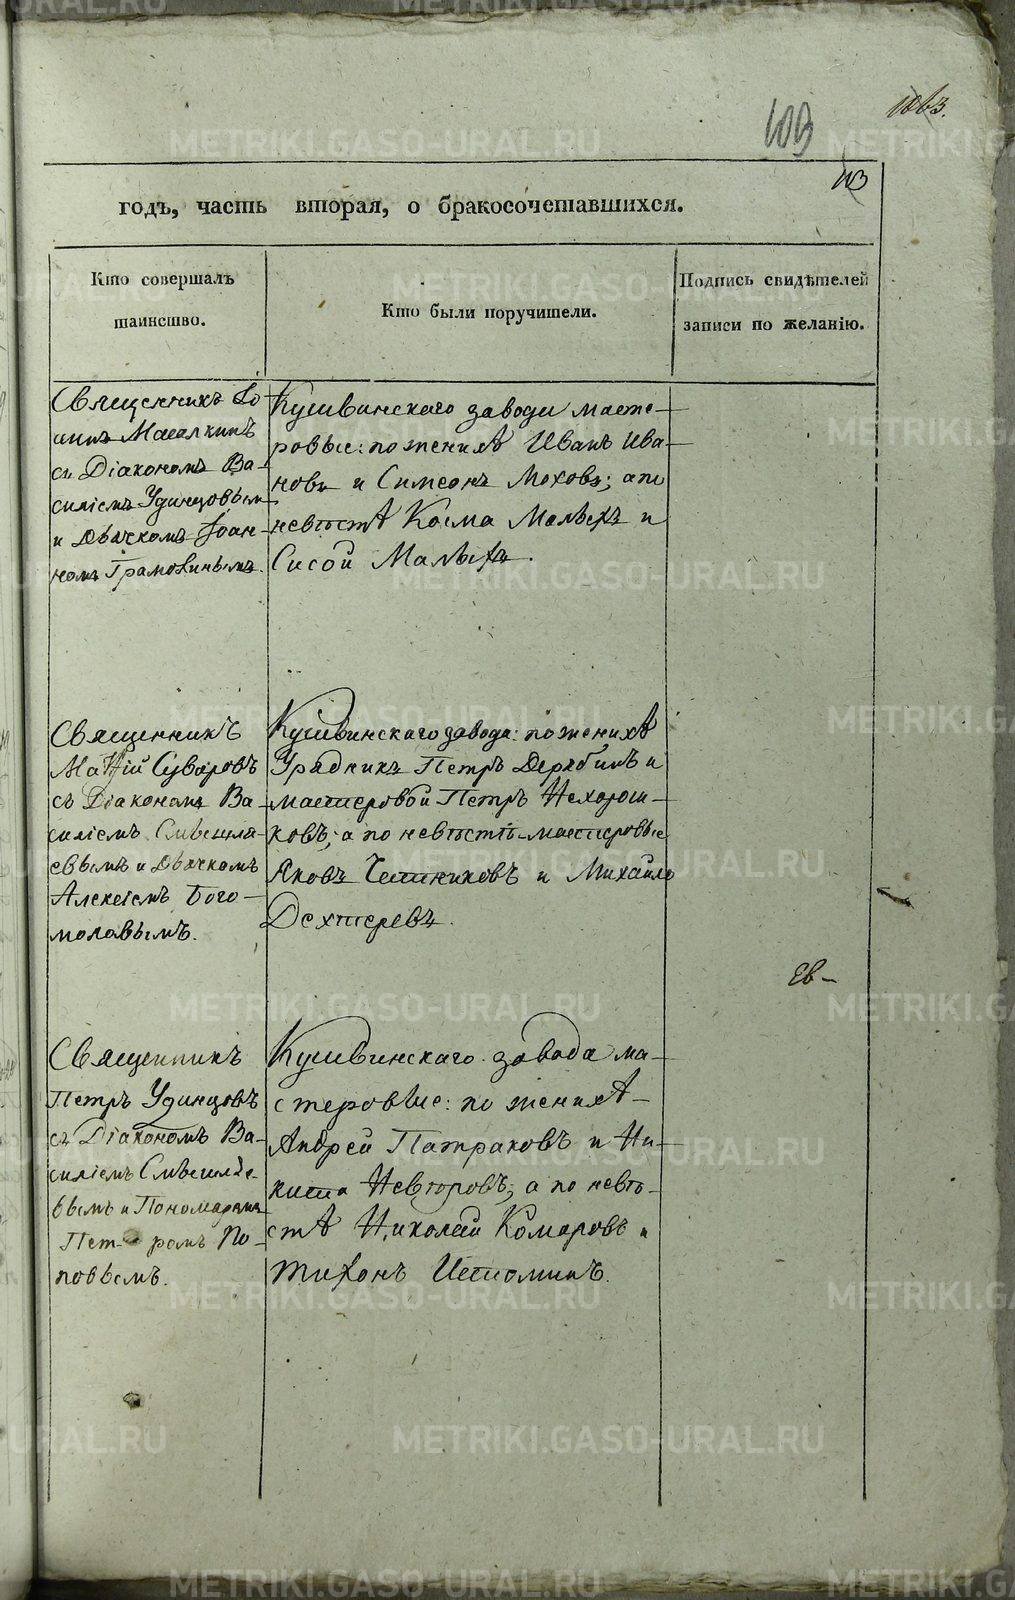 103
1063.
113
годъ, часть вторая, о бракосочетавшихся.
Кто совершалъ
таинство.
Кто были поручители.
Подпись свидѣтелей
записи по желанію.
Священникъ Іо
аннъ Масалкинъ
съ Діакономъ Ва-
силіемъ Удинцовым
и дьячкомъ Іоан-
номъ Грамолинымъ.
Кушвинскаго завода масте-
ровые: по женихѣ Иванъ Ива-
новъ и Симеонъ Моховъ; а по
невѣстѣ Косма Малыхъ и
Сисой Малыхъ.
Священникъ
Матѳій Суваровъ
съ Діакономъ Ва-
силіемъ
и Дьячкомъ
Алексіемъ Бого-
моловымъ.
Кушвинскаго завода: по женихѣ
Урядникъ Петръ Дерябинъ и
мастеровой Петръ Нехорош-
ковъ; а по невѣстѣ-мастеровые
Яковъ и Михайло
Дехтеревъ.
Ев-
Священникъ
Петръ Удинцовъ
съ Діакономъ Ва-
силіемъ
вымъ и Пономаремъ
Пет- ромъ По-
повымъ.
Кушвинскаго завода ма-
стеровые: по женихѣ-
Андрей Патраковъ и Ни-
кита Невзоровъ; а по невѣ-
стѣ Николай Комаровъ и
Тихонъ Истоминъ.
METRIKI.GASO-URAL.RU